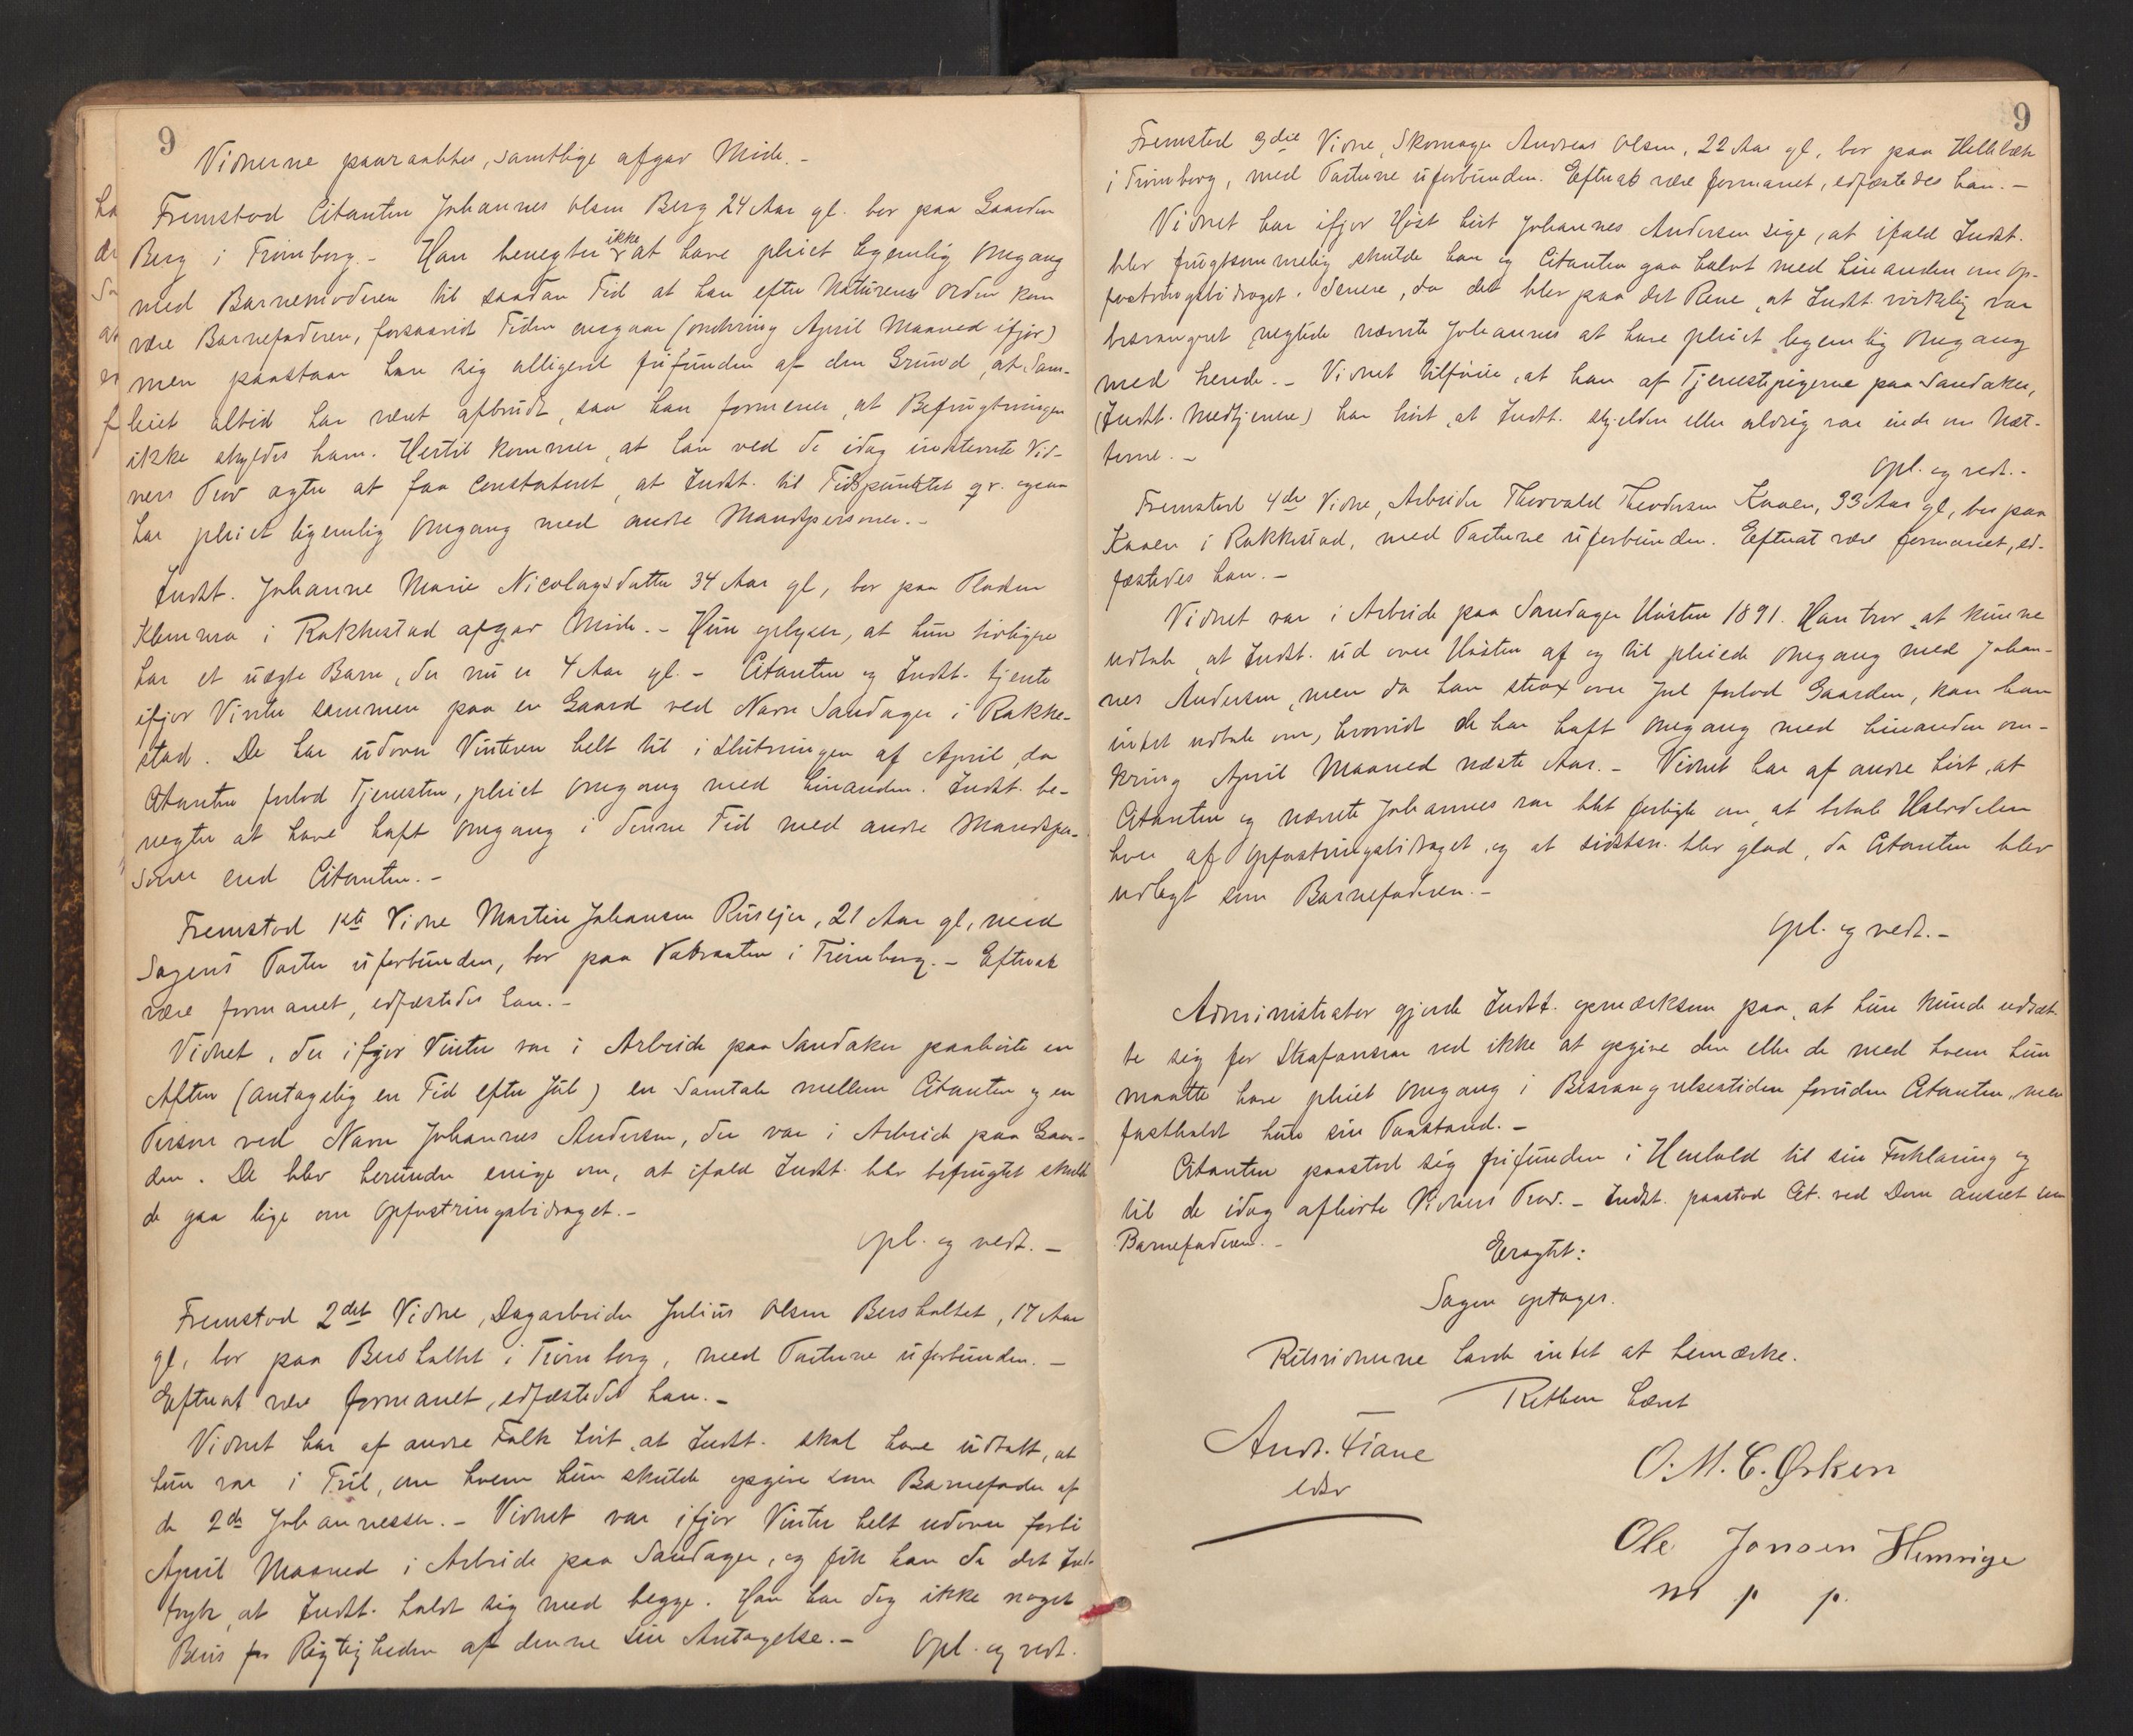 9
Vidnerne paaraabtes, samtlige afgav Møde. -
Fremstod Citanten Johannes Olsen Berg 24 Aar gl. bor paa Gaarden
Berg i Trømborg. - Han benegter ikke at have pleiet legemlig Omgang
med Barnemoderen til saadan Tid at han efter Naturens Orden kan
være Barnefaderen, forsaavidt Tiden angaar (omkring April Maaned ifjor)
men paastaar han sig alligevel frifunden af den Grund, at Sam-
leiet altid har været afbrudt, saa han formener, at Befrugtningen
ikke skyldes ham. Hertil kommer, at han ved de idag indstevnte Vid-
ners Prov agter at faa constateret, at Indst. til Tidspunktet qv. ogsaa
har pleiet legemlig Omgang med andre Mandspersoner. -
Indst. Johanne Marie Nicolaysdatter 34 Aar gl, bor paa Pladsen
Klemma i Rakkestad afgav Møde. - Hun oplyser, at hun tidligere
har et uægte Barn, der nu er 4 Aar gl. - Citanten og Indst. tjente
ifjor Vinter sammen paa en Gaard ved Navn Sandager i Rakke-
stad. De har udover Vinteren helt til i Slutningen af April, da
Citanten forlod Tjenesten, pleiet Omgang med hinanden. Indst. be-
negter at have haft Omgang i denne Tid med andre Mandsper-
soner end Citanten. -
Fremstod 1ste Vidne Martin Johansen Rusejer, 21 Aar gl, med
Sagens Parter uforbunden, bor paa i Trømborg. - Efterat
være formanet, edfæstedes han. -
Vidnet, der ifjor Vinter var i Arbeide paa Sandaker paahørte en
Aften (antagelig en Tid efter Jul) en Samtale mellem Citanten og en
Person ved Navn Johannes Andersen, der var i Arbeide paa Gaar-
den. De blev herunder enige om, at ifald Indst. blev befrugtet skulde
de gaa lige om Opfostringsbidraget. -
Opl. og vedt. -
Fremstod 2det Vidne, Dagarbeider Julius Olsen Bersholtet, 17 Aar
gl, bor paa Bersholtet i Trømborg, med Parterne uforbunden. -
Efterat være formanet, edfæstedes han. -
Vidnet har af andre Folk hørt, at Indst. skal have udtalt, at
hun var i Tvil, om hvem hun skulde opgive som Barnefader af
de 2de Johannesser. - Vidnet var ifjor Vinter helt udover forbi
April Maaned i Arbeide paa Sandager, og fik han da det Ind-
tryk, at Indst. holdt sig med begge. Han har dog ikke noget
Bevis for Rigtigheden af denne sin Antagelse. - Opl. og vedt.
9
Fremstod 3die Vidne, Skomager Andreas Olsen, 22 Aar gl, bor paa Hellebæk
i Trømborg, med Parterne uforbunden. Efterat være formanet, edfæstedes han. -
Vidnet har ifjor Høst hørt Johannes Andersen sige, at ifald Indst.
blev frugtsommelig skulde han og Citanten gaa halvt med hinanden om Op-
fostringsbidraget. Senere, da det blev paa det Rene, at Indst. virkelig var
besvangret, negtede nævnte Johannes at have pleiet legemlig Omgang
med hende. - Vidnet tilføier, at han af Tjenestepigerne paa Sandaker,
(Indst. Medtjenere) har hørt, at Indst. skjelden eller aldrig var inde om Næt-
terne. -
Opl. og vedt. -
Fremstod 4de Vidne, Arbeider Thorvald Theodorsen Kaaen, 33 Aar gl, bor paa
Kaaen i Rakkestad, med Parterne uforbunden. Efterat være formanet, ed-
fæstedes han. -
Vidnet var i Arbeide paa Sandager Høsten 1891. Han tror, at kunne
udtale, at Indst. ud over Høsten af og til pleiede Omgang med Johan-
nes Andersen, men da han strax over Jul forlod Gaarden, kan han
intet udtale om, hvorvidt de har haft Omgang med hinanden om-
kring April Maaned næste Aar. - Vidnet har af andre hørt, at
Citanten og nævnte Johannes var blet forligte om, at betale Halvdelen
hver af Opfostringsbidraget, og at sidstn. blev glad, da Citanten blev
udlagt som Barnefaderen. -
Opl. og vedt. -
Administrator gjorde Indst. opmærksom paa, at hun kunde udsæt-
te sig for Strafansvar ved ikke at opgive den eller de med hvem hun
maatte have pleiet Omgang i Besvangrelsestiden foruden Citanten, men
fastholdt hun sin Paastand. -
Citanten paastod sig frifunden i Henhold til sin Forklaring og
til de idag afhørte Vidners Prov. - Indst. paastod Cit. ved Dom anseet som
Barnefaderen. -
Eragtet:
Sagen optages.
Retsvidnerne havde intet at bemærke.
Retten hævet
Andr. Fiane
edsv
O. M. C. Ørken
Ole Jonsen Hemnige
m p p.